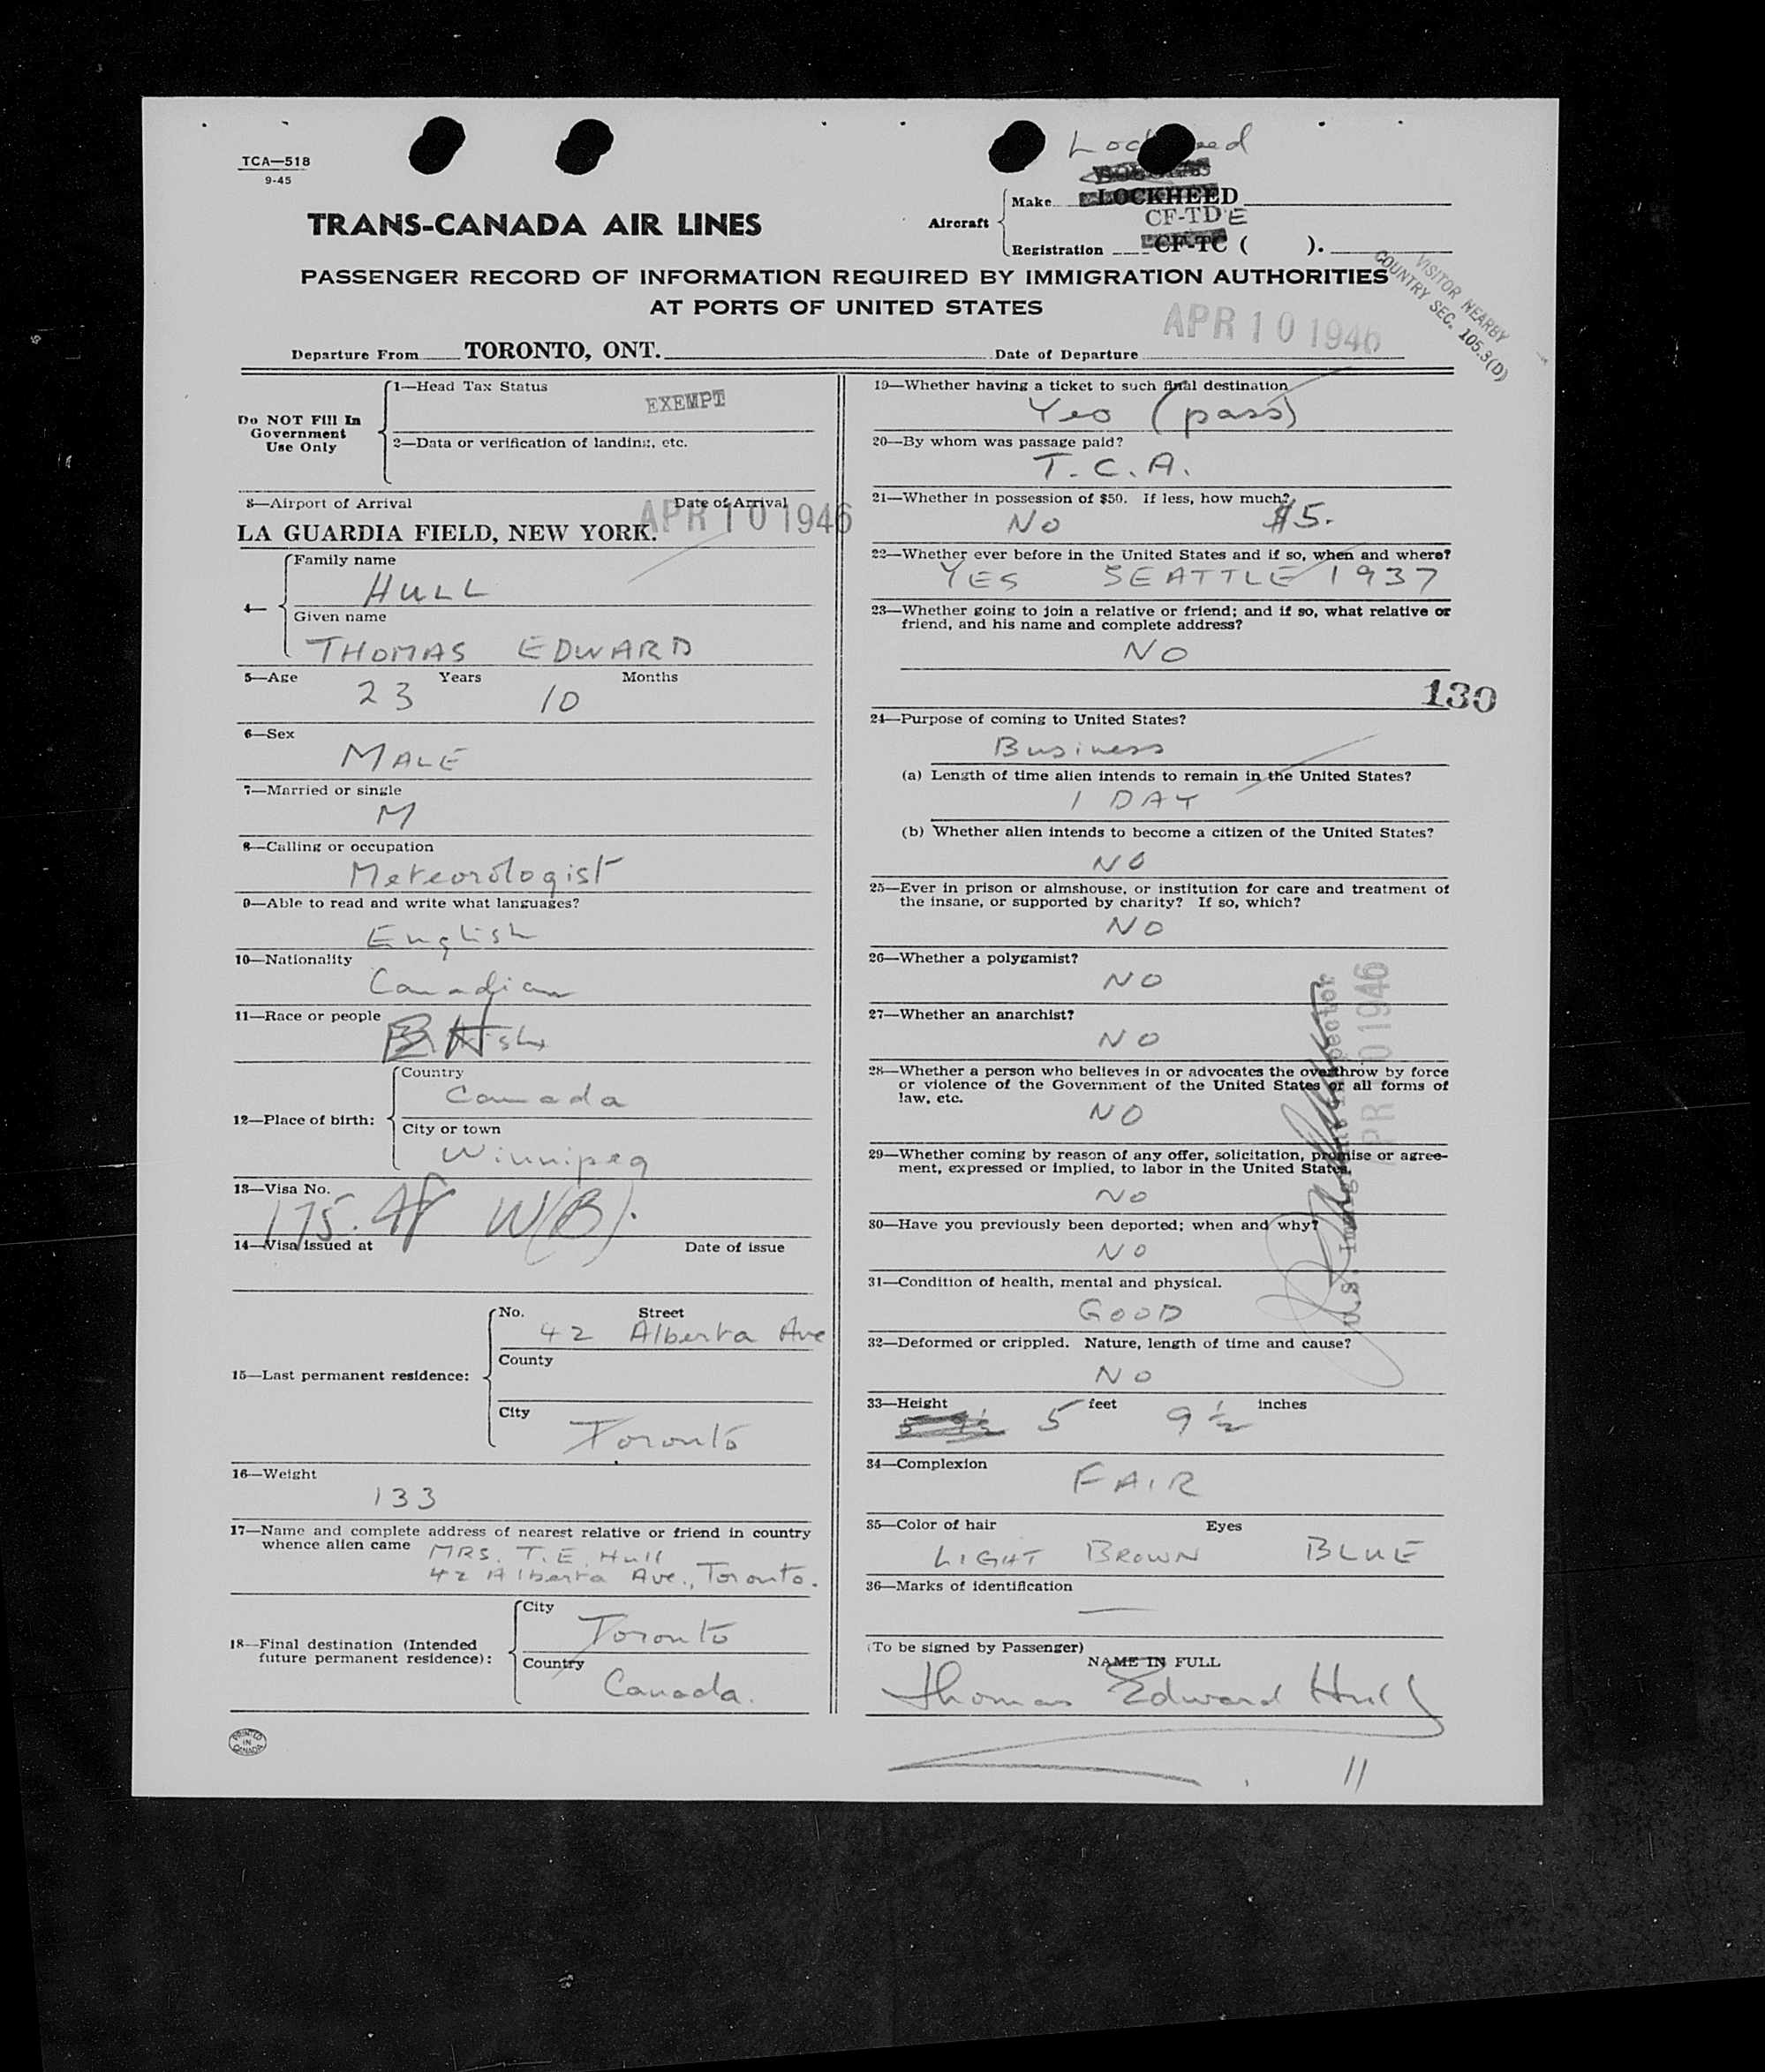 TCA—518
9-45
Lockheed
Make LOCKHEED
Aircraft
CF-TDE
Registration CF-TC ( ).
TRANS-CANADA AIR LINES
PASSENGER RECORD OF INFORMATION REQUIRED BY IMMIGRATION AUTHORITIES
AT PORTS OF UNITED STATES
VISITOR NEARBY
COUNTRY SEC. 105.3(D)
APR 10 1946
Departure From TORONTO, ONT. Date of Departure
Do NOT Fill In
Government
Use Only
1—Head Tax Status
EXEMPT
2—Data or verification of landing, etc.
3—Airport of Arrival Date of Arrival
LA GUARDIA FIELD, NEW YORK. APR 10 1946
4—
Family name
HULL
Given name
THOMAS EDWARD
5—Age Years Months
23 10
6—Sex
MALE
7—Married or single
M
8—Calling or occupation
Meteorologist
9—Able to read and write what languages?
English
10—Nationality
Canadian
11—Race or people
British
12—Place of birth:
Country
Canada
City or town
Winnipeg
13—Visa No.
175. W(B).
14—Visa issued at Date of issue
15—Last permanent residence:
No. Street
42 Alberta Ave
County
City
Toronto
16—Weight
133
17—Name and complete address of nearest relative or friend in country
whence alien came
MRS. T. E. Hull
42 Alberta Ave., Toronto.
18—Final destination (Intended
future permanent residence):
City
Toronto
Country
Canada.
PRINTED
IN
CANADA
19—Whether having a ticket to such final destination
Yes (pass)
20—By whom was passage paid?
T.C.A.
21—Whether in possession of $50. If less, how much?
No $5.
22—Whether ever before in the United States and if so, when and where?
YES SEATTLE 1937
23—Whether going to join a relative or friend; and if so, what relative or
friend, and his name and complete address?
NO
130
24—Purpose of coming to United States?
Business
(a) Length of time alien intends to remain in the United States?
1 DAY
(b) Whether alien intends to become a citizen of the United States?
NO
25—Ever in prison or almshouse, or institution for care and treatment of
the insane, or supported by charity? If so, which?
NO
26—Whether a polygamist?
NO
27—Whether an anarchist?
NO
28—Whether a person who believes in or advocates the overthrow by force
or violence of the Government of the United States or all forms of
law, etc.
NO
29—Whether coming by reason of any offer, solicitation, promise or agree-
ment, expressed or implied, to labor in the United States.
NO
30—Have you previously been deported; when and why?
NO
31—Condition of health, mental and physical.
GOOD
32—Deformed or crippled. Nature, length of time and cause?
NO
33—Height feet inches
5 9½ 5 9½
34—Complexion
FAIR
35—Color of hair Eyes
LIGHT BROWN BLUE
36—Marks of identification
—
(To be signed by Passenger)
NAME IN FULL
Thomas Edward Hull
11
U.S. Immigrant Inspector
APR 10 1946